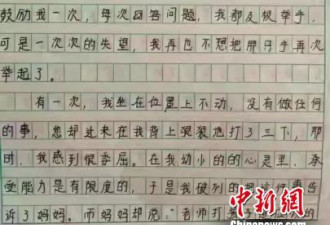 鼓励我一次，每次回答问题，我都反极举手，
可是一次次的失望，我再也不想把那只手再次
举起了。
有一次，我坐在位置上不动，没有做任何
的事，您却过来在我背上狠狠地打了三下，那
时，我感到很委屈。在我幼小的的心灵里，承
受能力是有限度的，于是我
诉了妈妈。而妈妈却说：老师打
中新网
www.chinanews.com